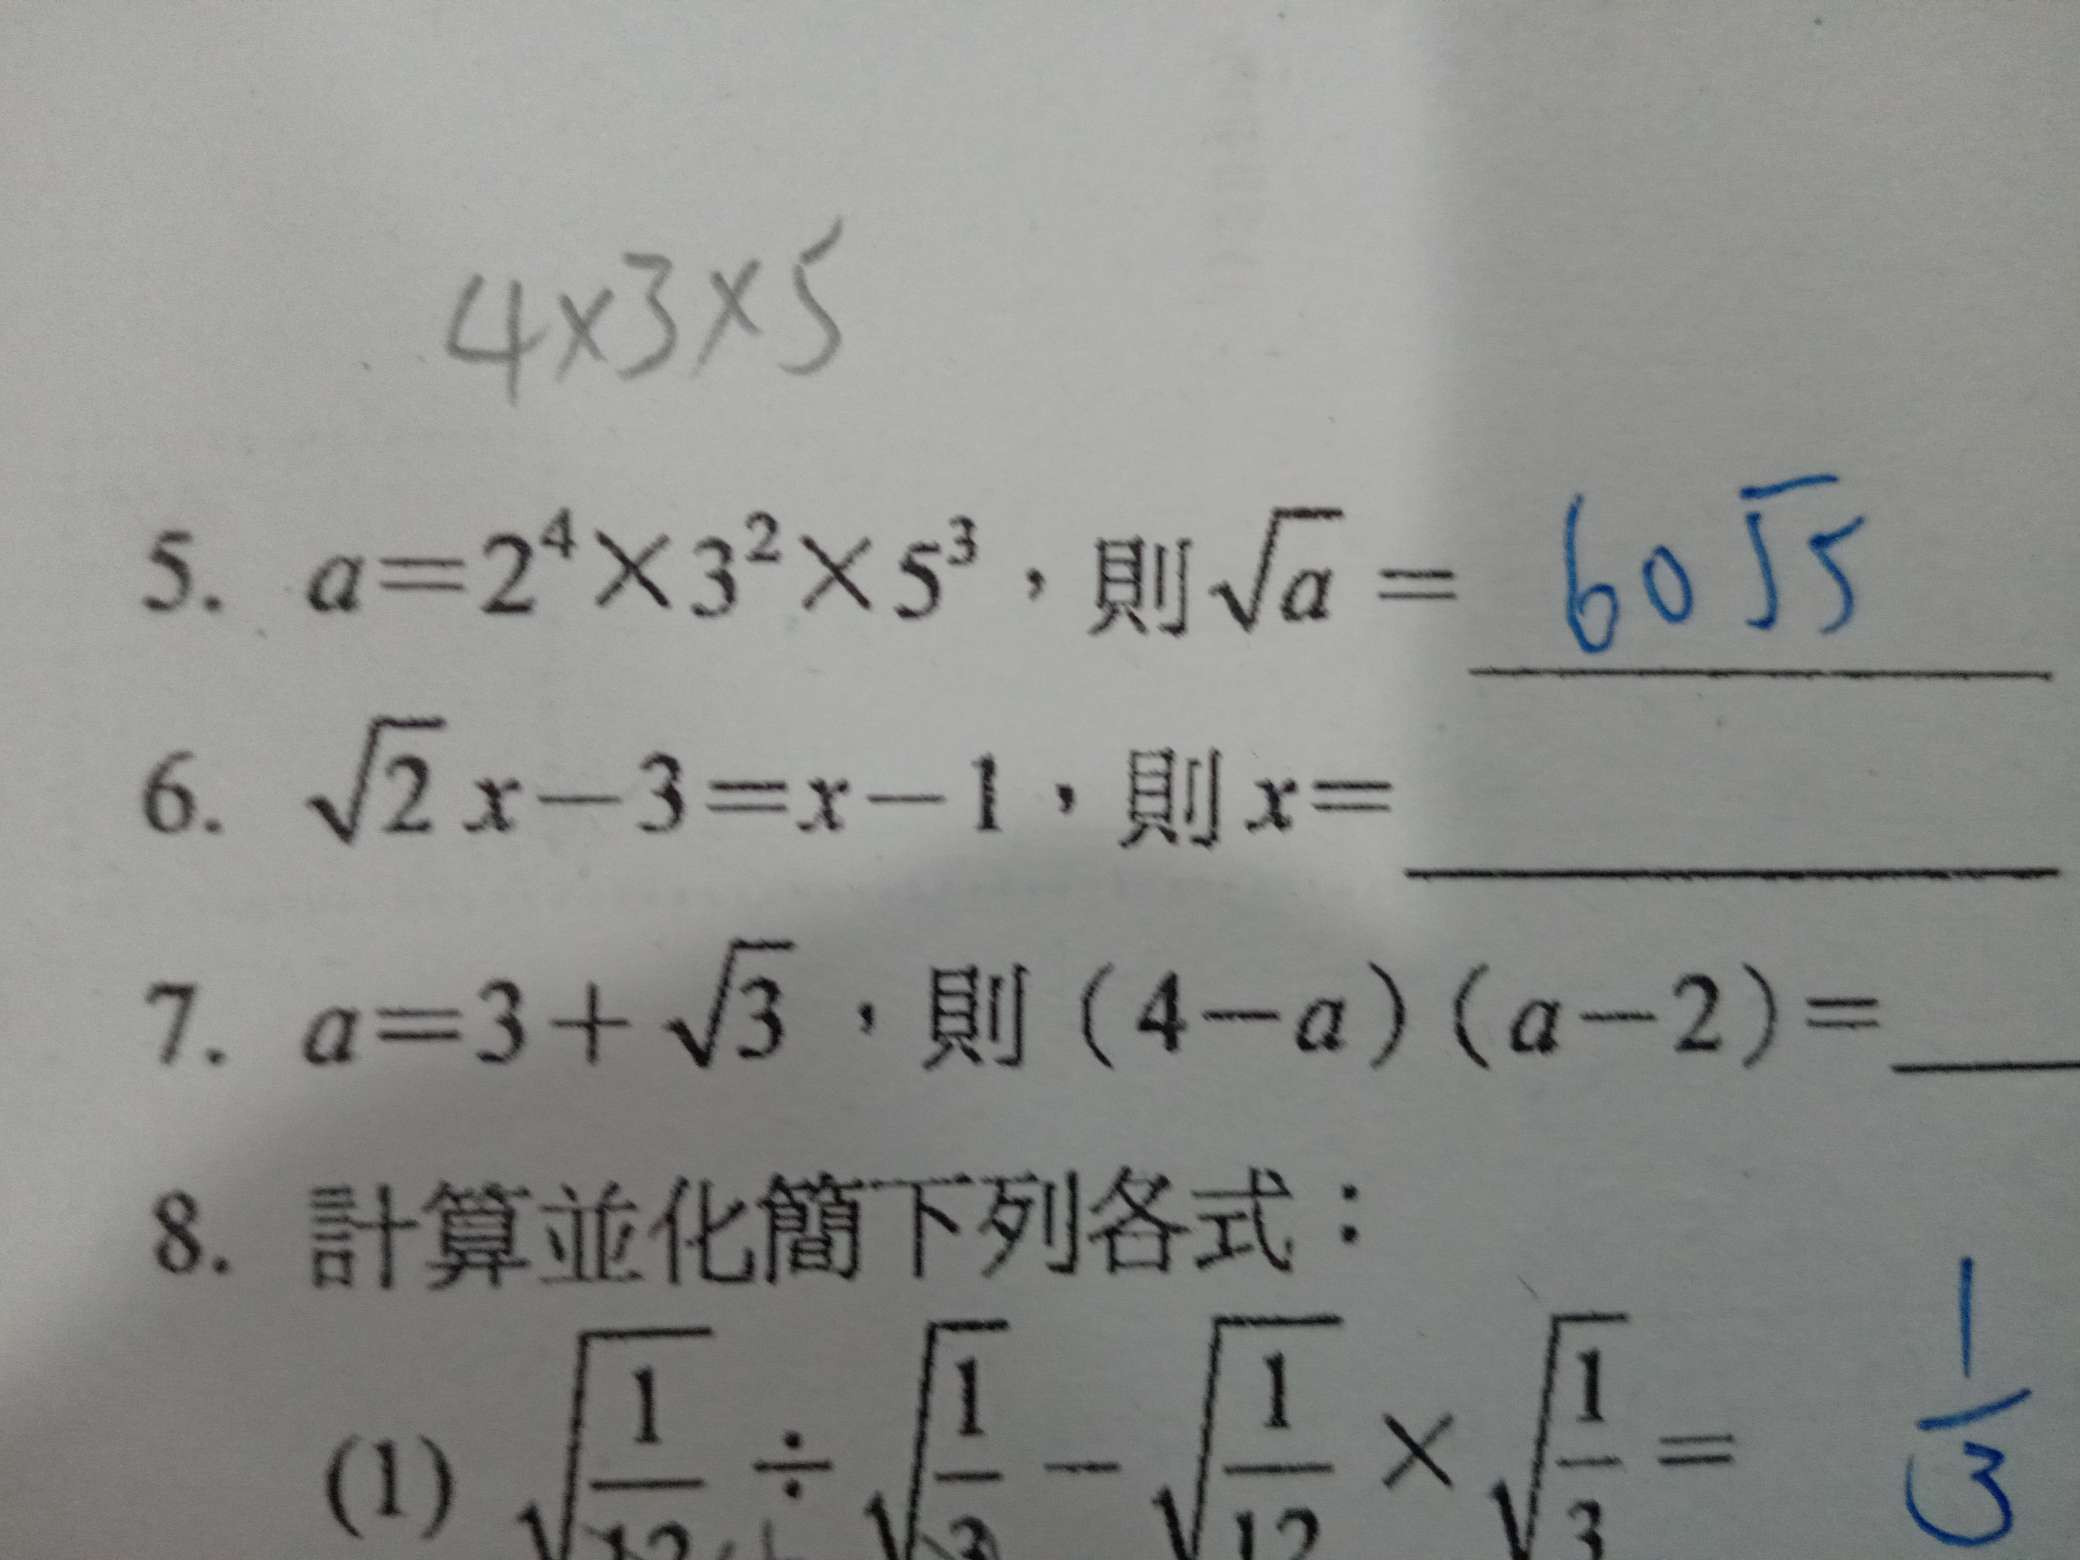 4×3×5
5. a=2⁴×3²×5³，則√a= 60√5
6. √2x−3=x−1，則x=
7. a=3+√3，則（4−a）（a−2）=
8. 計算並化簡下列各式：
(1) √(1/12)÷√(1/3)−√(1/12)×√(1/3)= 1/3